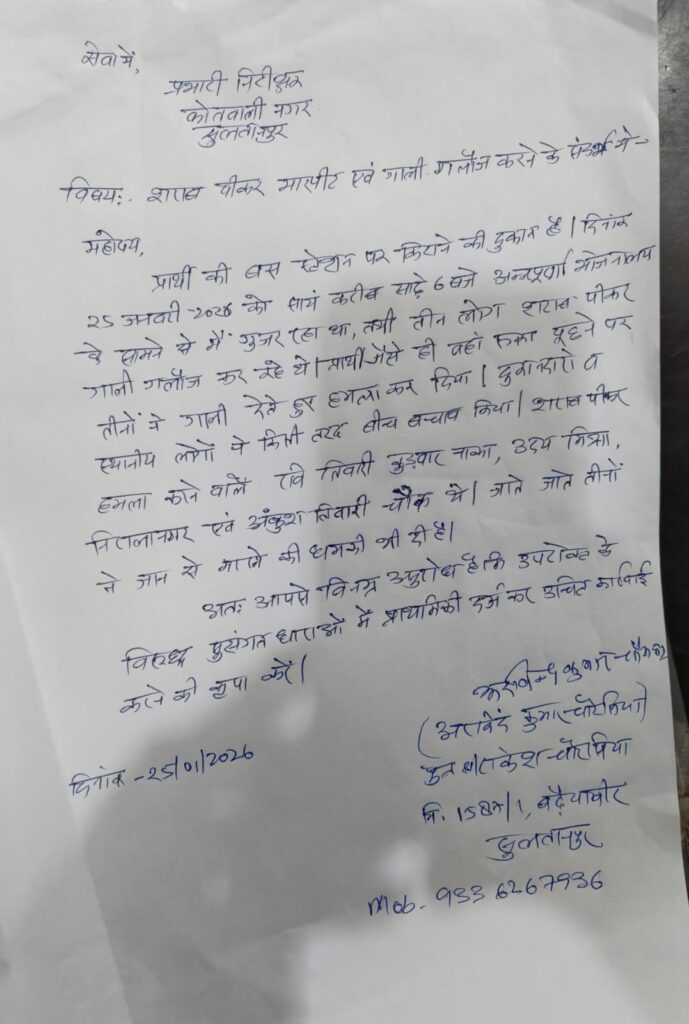 सेवा में,
प्रभारी निरीक्षक
कोतवाली नगर
सुलतानपुर
विषय:- शराब पीकर मारपीट एवं गाली गलौज करने के संदर्भ में-
महोदय,
प्रार्थी की बस स्टेशन पर किराने की दुकान है। दिनांक
25 जनवरी-2026 को सायं करीब साढ़े 6 बजे अन्नपूर्णा भोजनालय
के सामने से मैं गुजर रहा था, तभी तीन लोग शराब पीकर
गाली गलौज कर रहे थे। प्रार्थी जैसे ही वहां रुका पूछने पर
तीनों ने गाली देते हुए हमला कर दिया। दुकानदारों व
स्थानीय लोगों ने किसी तरह बीच बचाव किया। शराब पीकर
हमला करने वाले रवि तिवारी कुड़वार नाका, उदय मिश्रा,
निरालानगर एवं अंकुश तिवारी चौक थे। जाते जाते तीनों
ने जान से मारने की धमकी भी दी है।
अतः आपसे विनम्र अनुरोध है कि उपरोक्त के
विरुद्ध सुसंगत धाराओं में प्राथमिकी दर्ज कर उचित कार्रवाई
करने की कृपा करें।
अरविन्द कुमार चौरसिया
(अरविंद कुमार चौरसिया)
पुत्र राकेश चौरसिया
नि. 1587/1, बढ़ैयावीर
सुलतानपुर
दिनांक -25/01/2026
Mob- 9336267936